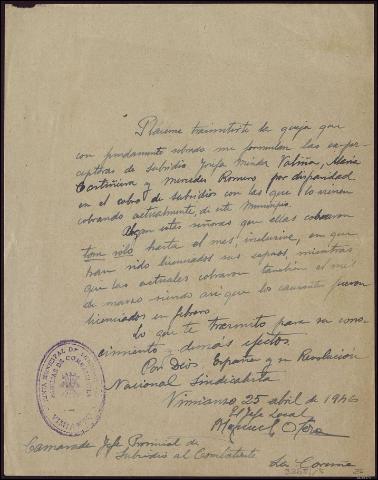 Pláceme trasmitirte la queja que
con fundamento sobrado me formulan las ex-per-
ceptoras de subsidio Josefa Miñda Valiña, María
Castiñeira y Mercedes Romero por disparidad
en el cobro de subsidios con las que lo vienen
cobrando actualmente, de este Municipio.
Alegan estas señoras que ellas cobraron
tan sólo hasta el mes, inclusive, en que
han sido licenciados sus esposos, mientras
que las actuales cobraron también el mes
de marzo siendo así que los causantes fueron
licenciados en febrero.
Lo que te trasmito para su cono-
cimiento y demás efectos.
Por Dios, España y su Revolución
Nacional Sindicalista
Vimianzo, 25 abril de 1946
El Jefe Local
Manuel Otero
Camarada Jefe Provincial de
Subsidio al Combatiente
La Coruña